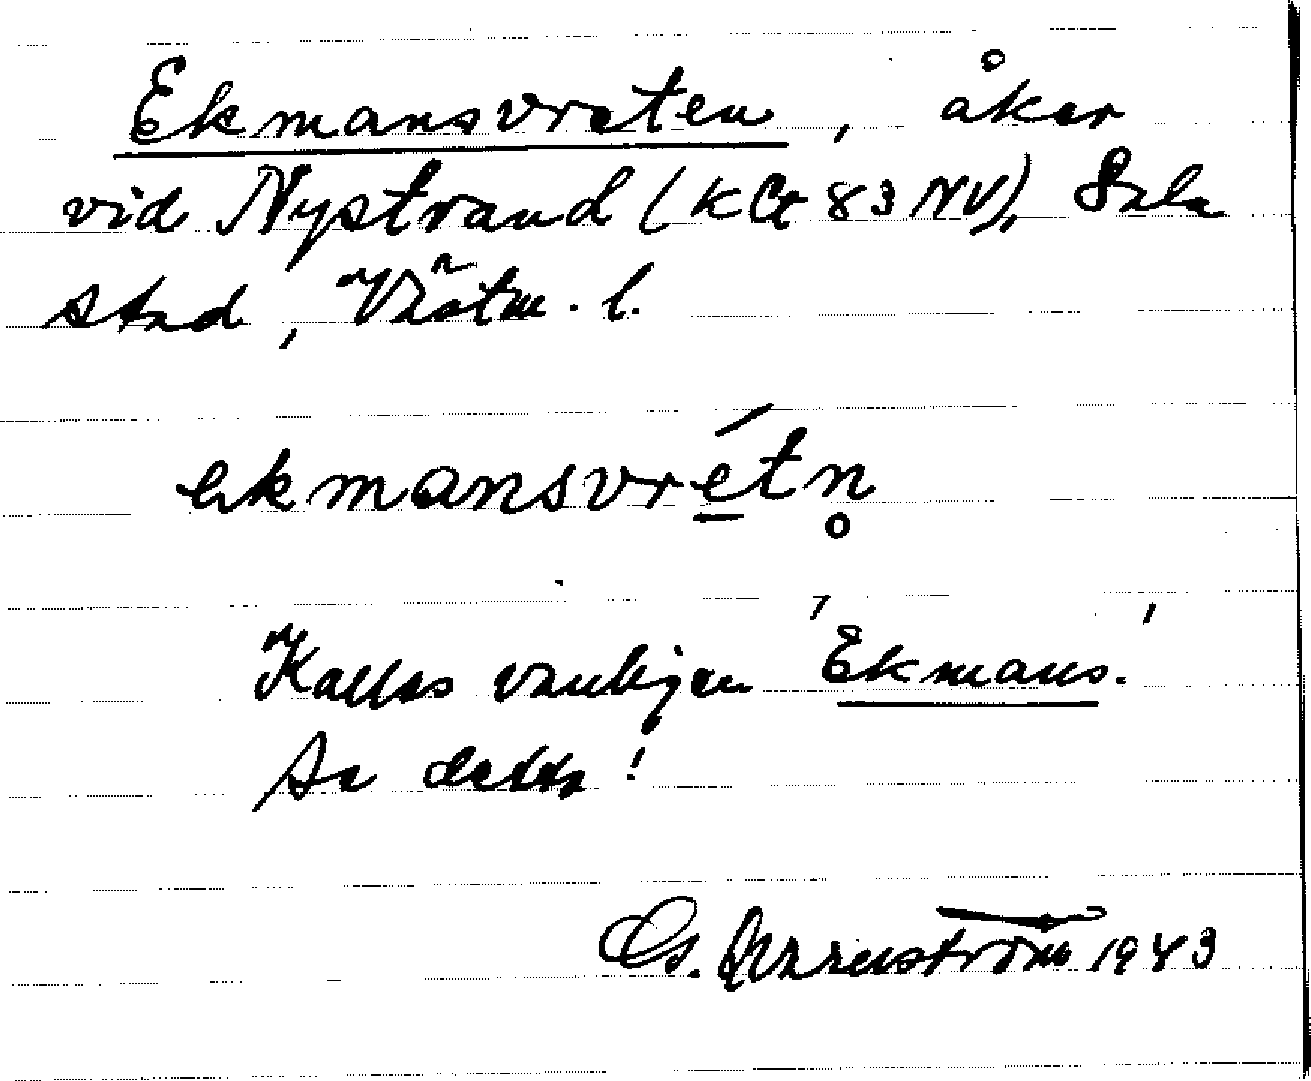 Ekmansvreten, åker
vid Nystrand (K Ct 83 NV), Sala
stad, Västm. l.
ekmansvré̱tn̥
Kallas vanligen 'Ekmans.'
Se detta!
Gs. 1943